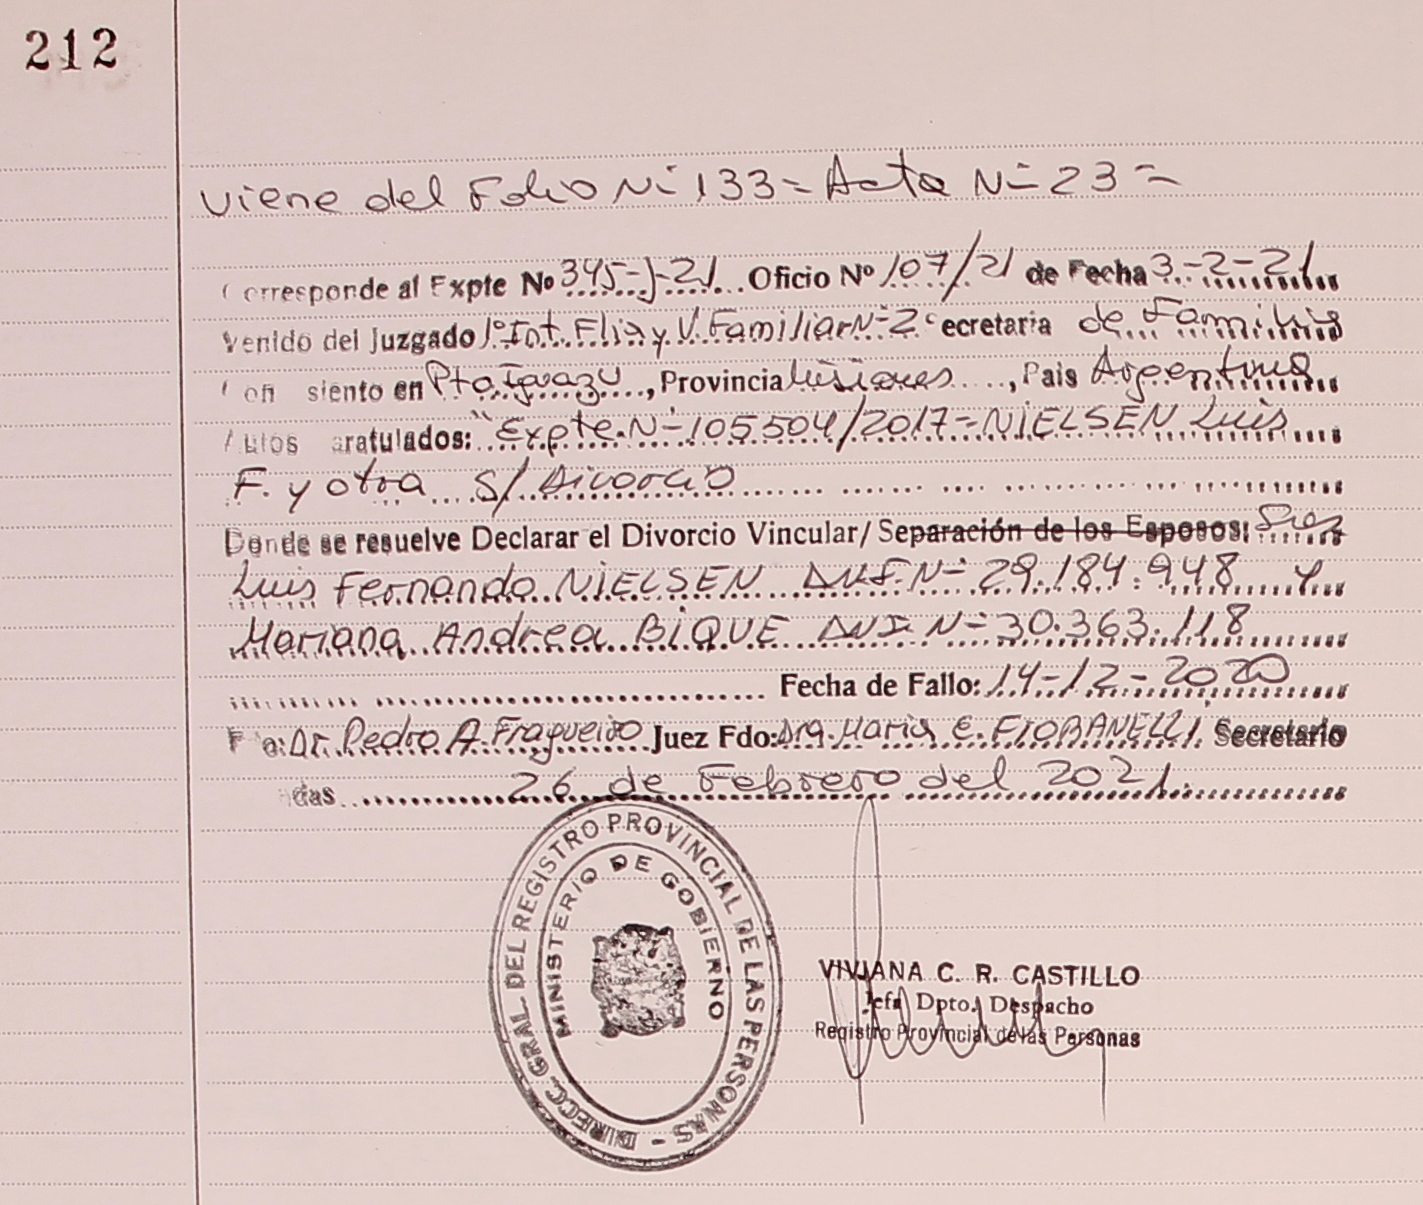 212
Viene del Folio Nº 133= Acta Nº 23=
Corresponde al Expte Nº 345-J-21 Oficio Nº 107/21 de Fecha 3-2-21
venido del Juzgado 1º Int. Flia y V. Familiar Nº 2 Secretaria de Familia
Con siento en Pto. Iguazu, Provincia Misiones, Pais Argentina
Autos aratulados: "Expte. Nº 105504/2017=NiELSEN Luis
F. y otra s/ Divorcio
Donde se resuelve Declarar el Divorcio Vincular/ Separación de los Esposos: Sres
Luis Fernando NiELSEN DNI. Nº 29.184.948 y
Mariana Andrea BiQUE DNI Nº 30.363.118
Fecha de Fallo: 14-12-2020
Dr. Pedro A. Fragueiro Juez Fdo: Dra. Maria E. FIORANELLI, Secretario
das 26 de Febrero del 2021.
DIRECC. GRAL. DEL REGISTRO PROVINCIAL DE LAS PERSONAS -
MINISTERIO DE GOBIERNO
VIVIANA C. R. CASTILLO
Jefa Dpto. Despacho
Registro Provincial de las Personas